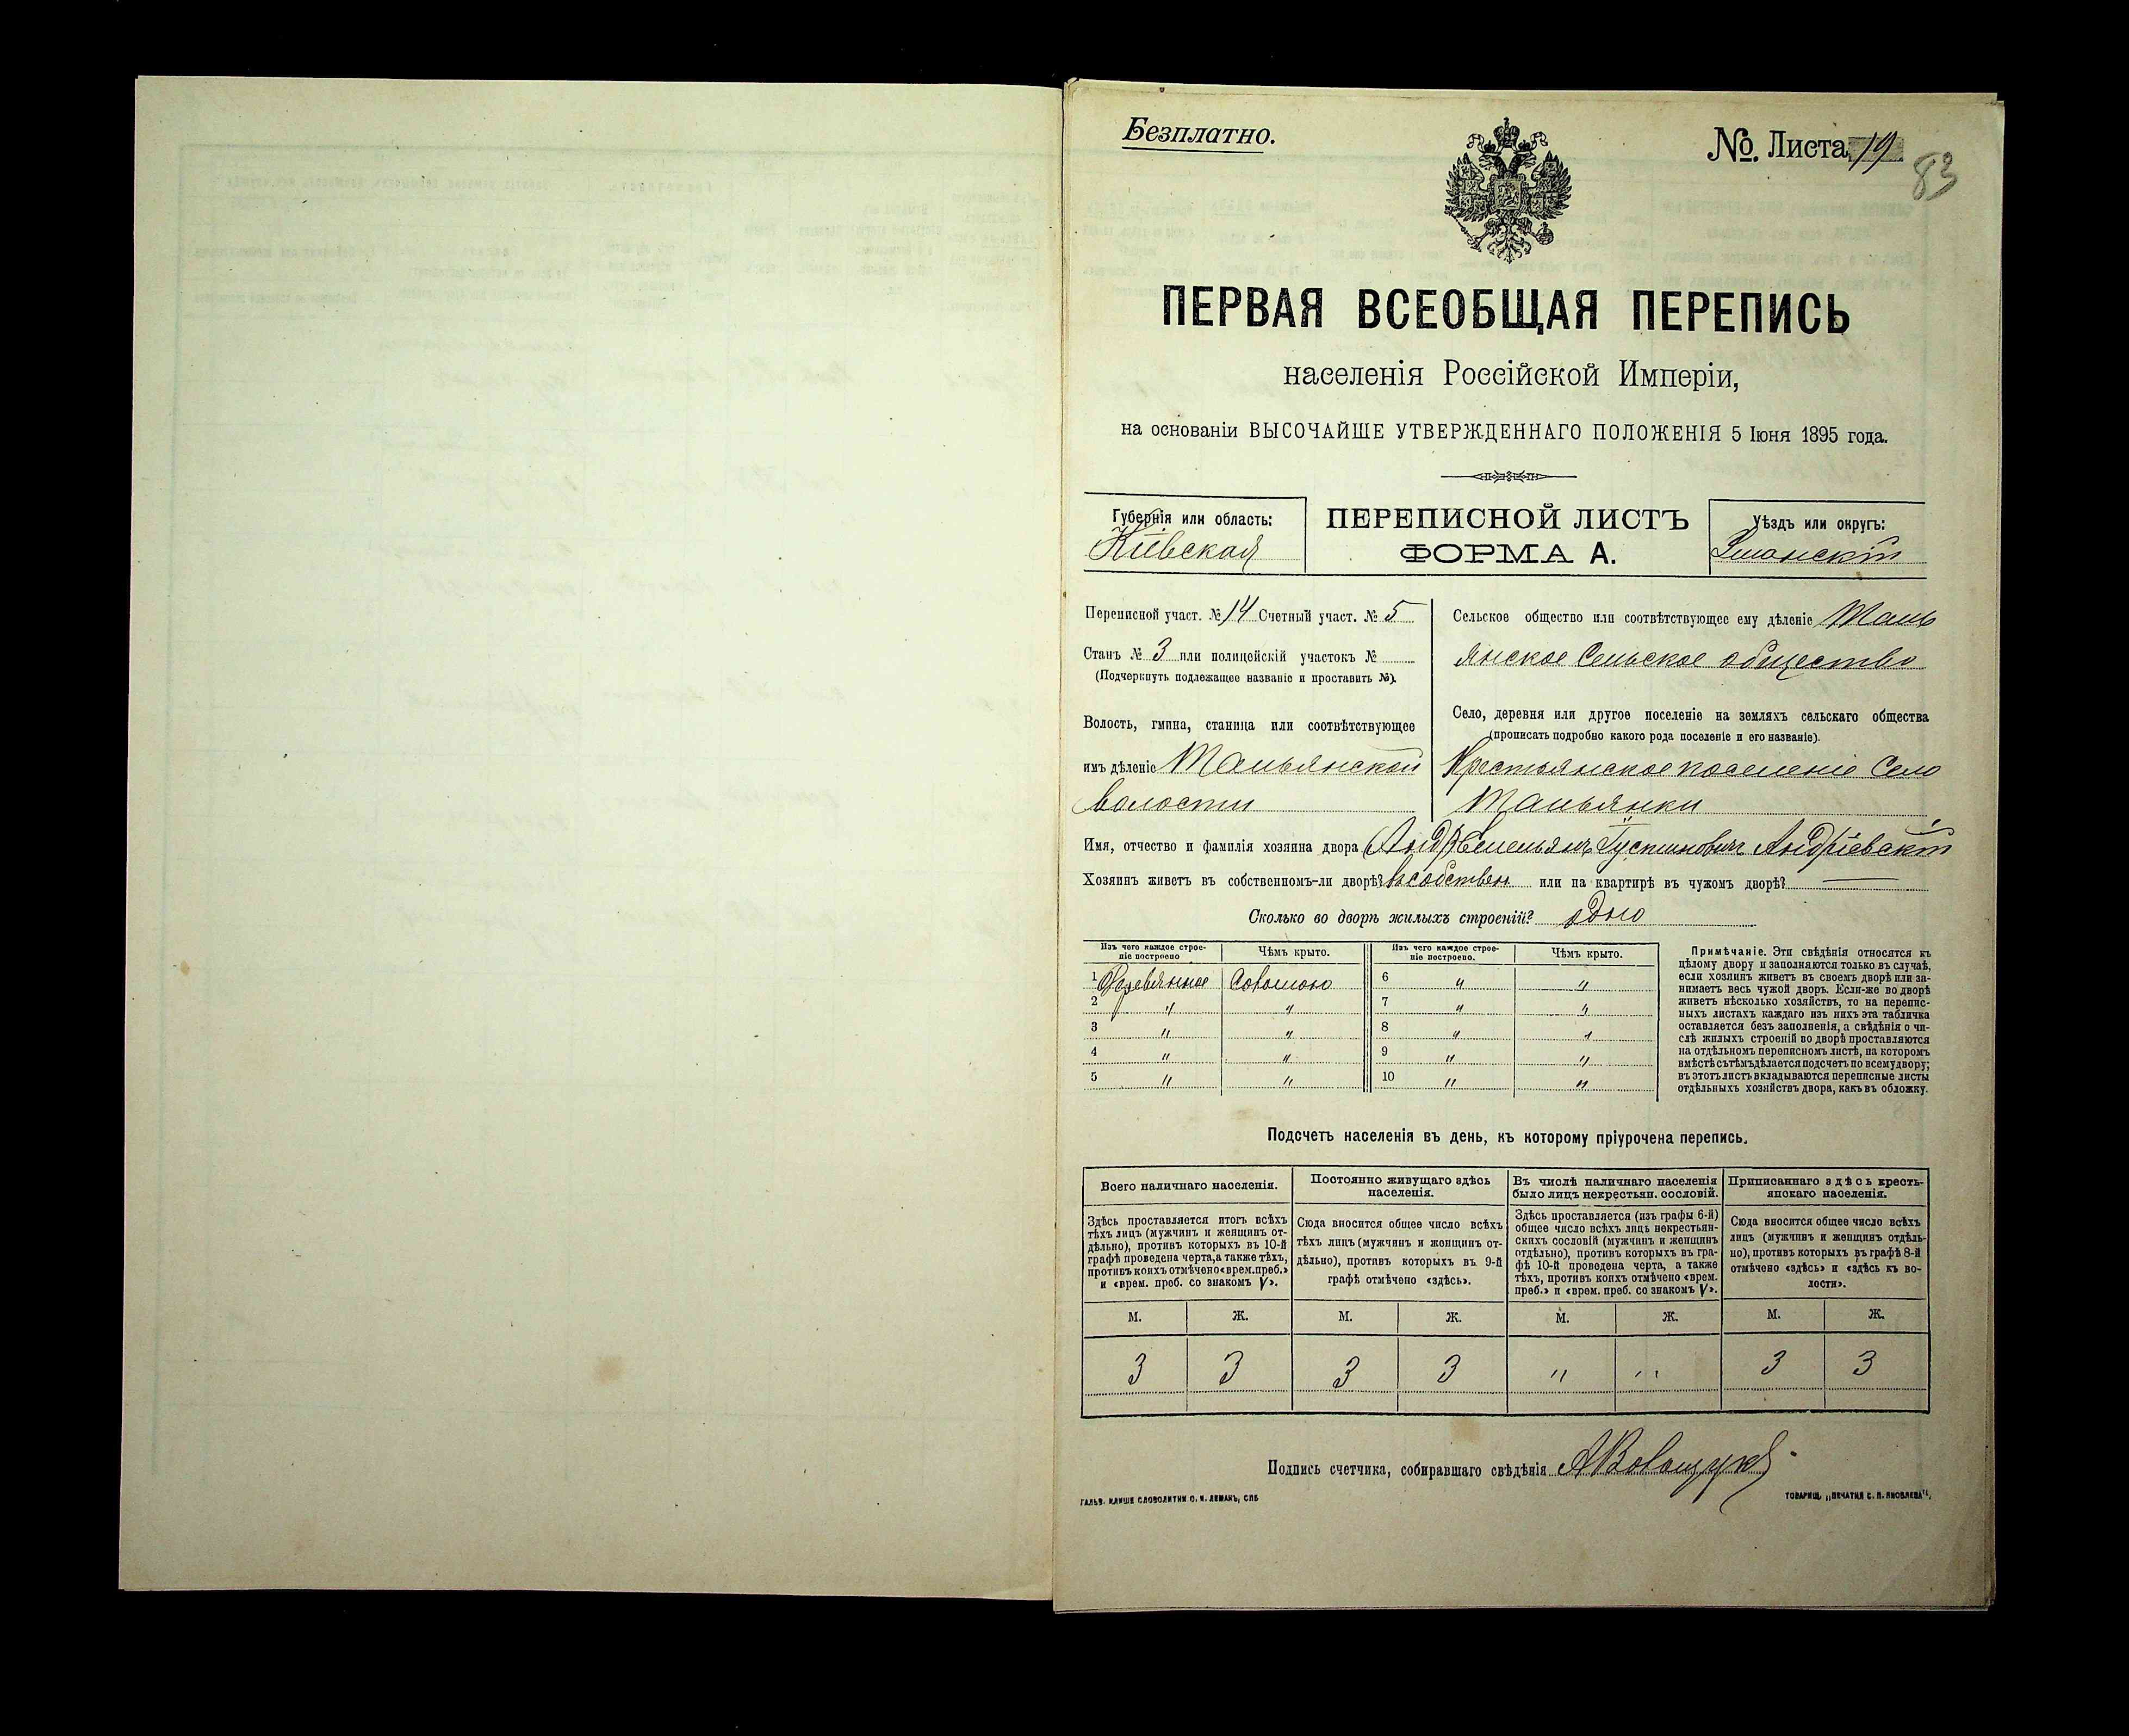 Безплатно.
№. Листа 19.
83
ПЕРВАЯ ВСЕОБЩАЯ ПЕРЕПИСЬ
населенія Россійской Имперіи,
на основаніи ВЫСОЧАЙШЕ УТВЕРЖДЕННАГО ПОЛОЖЕНІЯ 5 Іюня 1895 года.
Губернія или область:
Кіевская
ПЕРЕПИСНОЙ ЛИСТЪ
ФОРМА А.
Уѣздъ или округъ:
Уманскій
Переписной участ. № 14 Счетный участ. № 5
Станъ № 3 или полицейскій участокъ №
(Подчеркнуть подлежащее названіе и проставить №).
Волость, гмина, станица или соотвѣтствующее
имъ дѣленіе Тальянской
волости
Сельское общество или соотвѣтствующее ему дѣленіе Таль
янское Сельское общество
Село, деревня или другое поселеніе на земляхъ сельскаго общества
(прописать подробно какого рода поселеніе и его названіе).
Крестьянское поселеніе Село
Тальянки
Имя, отчество и фамилія хозяина двора (Анд) Емельянъ Іустиновичъ Андріевскій
Хозяинъ живетъ въ собственномъ-ли дворѣ? въ собствен или на квартирѣ въ чужомъ дворѣ? —
Сколько во дворѣ жилыхъ строеній? одно
Изъ чего каждое строе-
ніе построено
Чѣмъ крыто.
Изъ чего каждое строе-
ніе построено.
Чѣмъ крыто.
1 Деревянное Соломою 6 " "
2 " " 7 " "
3 " " 8 " "
4 " " 9 " "
5 " " 10 " "
Примѣчаніе. Эти свѣдѣнія относятся къ
цѣлому двору и заполняются только въ случаѣ,
если хозяинъ живетъ въ своемъ дворѣ или за-
нимаетъ весь чужой дворъ. Если-же во дворѣ
живетъ нѣсколько хозяйствъ, то на перепис-
ныхъ листахъ каждаго изъ нихъ эта табличка
оставляется безъ заполненія, а свѣдѣнія о чи-
слѣ жилыхъ строеній во дворѣ проставляются
на отдѣльномъ переписномъ листѣ, на которомъ
вмѣстѣ съ тѣмъ дѣлается подсчетъ по всему двору;
въ этотъ листъ вкладываются переписные листы
отдѣльныхъ хозяйствъ двора, какъ въ обложку.
Подсчетъ населенія въ день, къ которому пріурочена перепись.
Всего наличнаго населенія.
Постоянно живущаго здѣсь
населенія.
Въ числѣ наличнаго населенія
было лицъ некрестьян. сословій.
Приписаннаго здѣсь кресть-
янскаго населенія.
Здѣсь проставляется итогъ всѣхъ
тѣхъ лицъ (мужчинъ и женщинъ от-
дѣльно), противъ которыхъ въ 10-й
графѣ проведена черта, а также тѣхъ,
противъ коихъ отмѣчено «врем. преб.»
и «врем. преб. со знакомъ V».
Сюда вносится общее число всѣхъ
тѣхъ лицъ (мужчинъ и женщинъ от-
дѣльно), противъ которыхъ въ 9-й
графѣ отмѣчено «здѣсь».
Здѣсь проставляется (изъ графы 6-й)
общее число всѣхъ лицъ некрестьян-
скихъ сословій (мужчинъ и женщинъ
отдѣльно), противъ которыхъ въ гра-
фѣ 10-й проведена черта, а также
тѣхъ, противъ коихъ отмѣчено «врем.
преб.» и «врем. преб. со знакомъ V».
Сюда вносится общее число всѣхъ
лицъ (мужчинъ и женщинъ отдѣль-
но), противъ которыхъ въ графѣ 8-й
отмѣчено «здѣсь» и «здѣсь къ во-
лости».
М. Ж. М. Ж. М. Ж. М. Ж.
3 3 3 3 " " 3 3
Подпись счетчика, собиравшаго свѣдѣнія
ГАЛЬВ. КЛИШЕ СЛОВОЛИТНИ О. И. ЛЕМАНЪ, СПБ
ТОВАРИЩ. „ПЕЧАТНЯ С. П. ЯКОВЛЕВА“.